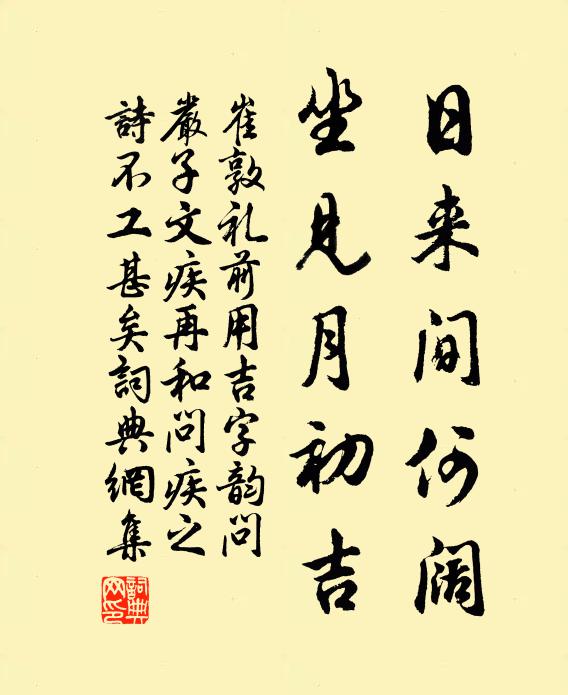 日来间何阔
坐见月初吉
崔敦礼前用吉字韵问
严子文疾再和问疾之
詩不工甚矣詞典網集
詞典
网印